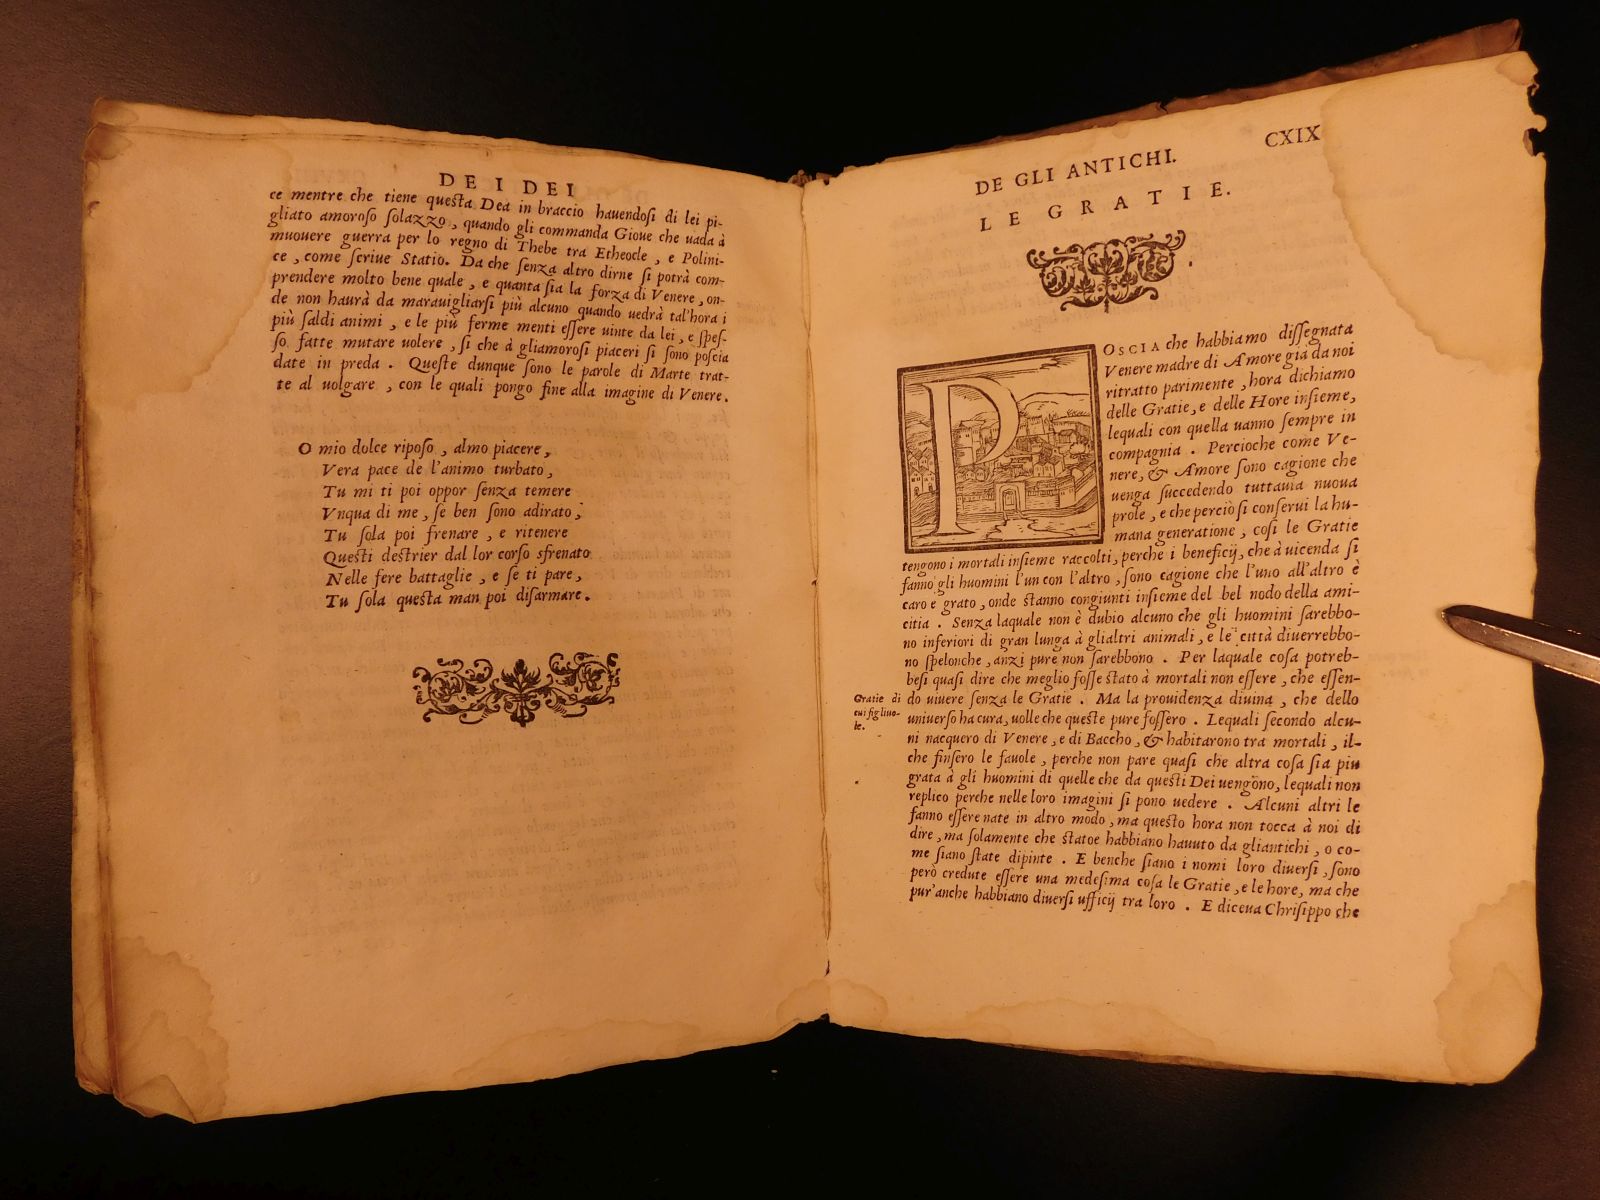 DEI DEI
ce mentre che tiene questa Dea in braccio hauendosi di lei pi-
gliato amoroso solazzo, quando gli commanda Gioue che uada à
muouere guerra per lo regno di Thebe tra Etheocle, e Polini-
ce, come scriue Statio. Da che senza altro dirne si potrà com-
prendere molto bene quale, e quanta sia la forza di Venere, on-
de non haurà da marauigliarsi più alcuno quando uedrà tal'hora i
più saldi animi, e le più ferme menti essere uinte da lei, e spes-
so fatte mutare uolere, si che à gliamorosi piaceri si sono poscia
date in preda. Queste dunque sono le parole di Marte trat-
te al uolgare, con le quali pongo fine alla imagine di Venere.
O mio dolce riposo, almo piacere,
Vera pace de l'animo turbato,
Tu mi ti poi oppor senza temere
Vnqua di me, se ben sono adirato;
Tu sola poi frenare, e ritenere
Questi destrier dal lor corso sfrenato
Nelle fere battaglie, e se ti pare,
Tu sola questa man poi disarmare.
DE GLI ANTICHI. CXIX
LE GRATIE.
POSCIA che habbiamo dissegnata
Venere madre di Amore già da noi
ritratto parimente, hora dichiamo
delle Gratie, e delle Hore insieme,
lequali con quella uanno sempre in
compagnia. Percioche come Ve-
nere, & Amore sono cagione che
uenga succedendo tuttauia nuoua
prole, e che perciò si conserui la hu-
mana generatione, cosi le Gratie
tengono i mortali insieme raccolti, perche i beneficij, che à uicenda si
fanno gli huomini l'un con l'altro, sono cagione che l'uno all'altro è
caro e grato, onde stanno congiunti insieme del bel nodo della ami-
citia. Senza laquale non è dubio alcuno che gli huomini sarebbo-
no inferiori di gran lunga à glialtri animali, e le città diuerrebbo-
no spelonche, anzi pure non sarebbono. Per laquale cosa potreb-
besi quasi dire che meglio fosse stato à mortali non essere, che essen-
Gratie di
cui figliuo-
le.
do uiuere senza le Gratie. Ma la prouidenza diuina, che dello
uniuerso ha cura, uolle che queste pure fossero. Lequali secondo alcu-
ni nacquero di Venere, e di Baccho, & habitarono tra mortali, il-
che finsero le fauole, perche non pare quasi che altra cosa sia più
grata à gli huomini di quelle che da questi Dei uengono, lequali non
replico perche nelle loro imagini si pono uedere. Alcuni altri le
fanno essere nate in altro modo, ma questo hora non tocca à noi di
dire, ma solamente che statoe habbiano hauuto da gliantichi, o co-
me siano state dipinte. E benche siano i nomi loro diuersi, sono
però credute essere una medesima cosa le Gratie, e le hore, ma che
pur'anche habbiano diuersi ufficij tra loro. E diceua Chrisippo che